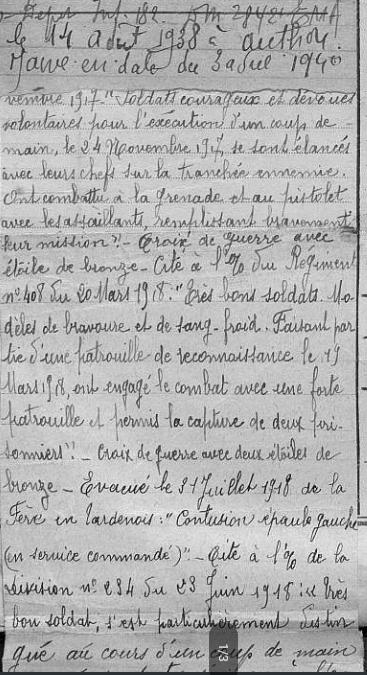 le 14 août 1938 à authon.
en date du 3 1940
vembre 1917 "Soldats courageux et dévoués
volontaires pour l'exécution d'un coup de
main, le 24 Novembre 1917, se sont élancés
avec leurs chefs sur la tranchée ennemie.
Ont combattu à la grenade et au pistolet
avec les assaillants, remplissant bravement
leur mission". - Croix de guerre avec
étoile de bronze - Cité à l'% du Régiment
n° 408 du 20 Mars 1918 : "Très bons soldats. Mo-
dèles de bravoure et de sang-froid. Faisant par
tie d'une patrouille de reconnaissance le 19
Mars 1918, ont engagé le combat avec une forte
patrouille et permis la capture de deux pri-
sonniers". - Croix de guerre avec deux étoiles de
bronze - Evacué le 31 Juillet 1918 de la
Fère en Tardenois : "Contusion épaule gauche
(en service commandé)". - Cité à l'% de la
Division n° 234 du 23 Juin 1918 : "Très
bon soldat, s'est particulièrement distin
gué au cours d'un coup de main
1/3